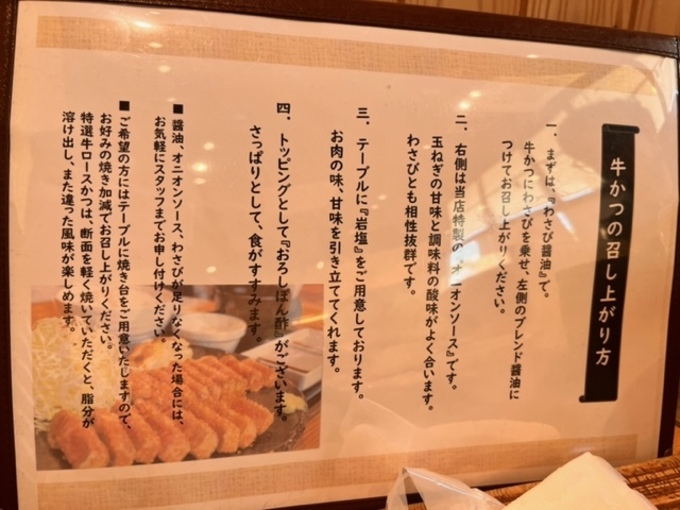 牛かつの召し上がり方
一、まずは、『わさび醤油』で。
牛かつにわさびを乗せ、左側のブレンド醤油に
つけてお召し上がりください。
二、右側は当店特製の『オニオンソース』です。
玉ねぎの甘味と調味料の酸味がよく合います。
わさびとも相性抜群です。
三、テーブルに『岩塩』をご用意しております。
お肉の味、甘味を引き立ててくれます。
四、トッピングとして『おろしぽん酢』がございます。
さっぱりとして、食がすすみます。
■醤油、オニオンソース、わさびが足りなくなった場合には、
お気軽にスタッフまでお申し付けください。
■ご希望の方にはテーブルに焼き台をご用意いたしますので、
お好みの焼き加減でお召し上がりください。
特選牛ロースかつは、断面を軽く焼いていただくと、脂分が
溶け出し、また違った風味が楽しめます。